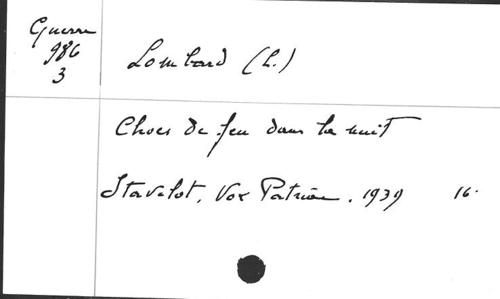 Guerre
986
3
Lombard (L.)
Chocs de feu dans la nuit
Stavelot, Vox Patriae. 1939 16.